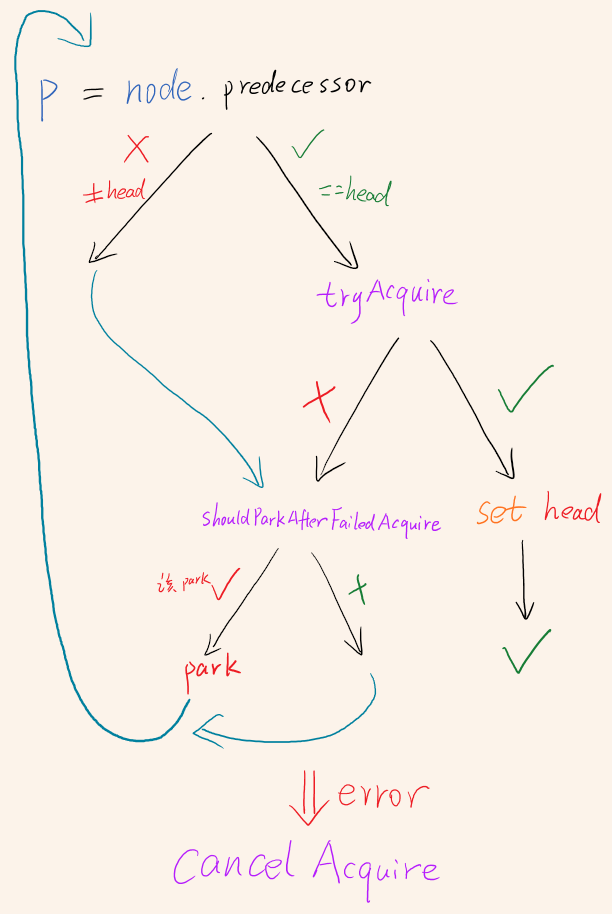 p = node.predecessor
≠head
==head
tryAcquire
shouldParkAfterFailedAcquire
set head
该park
park
error
Cancel Acquire